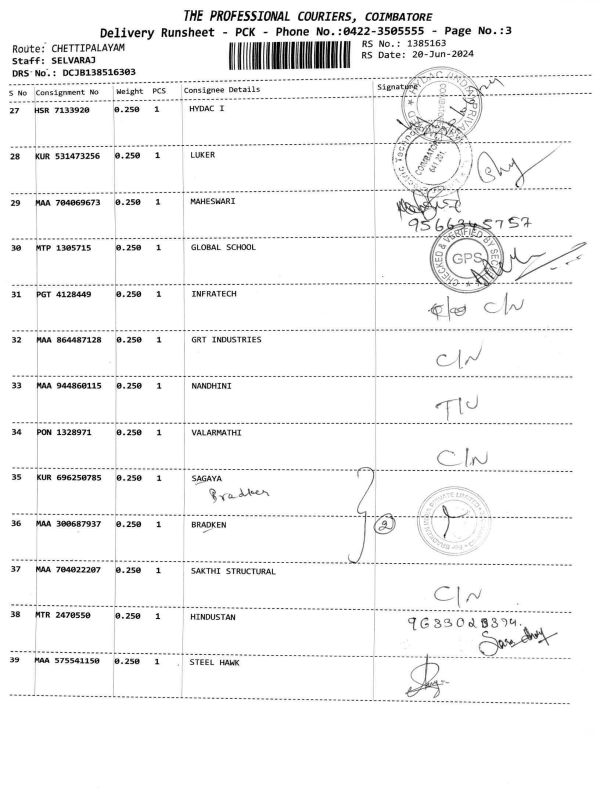 THE PROFESSIONAL COURIERS, COIMBATORE
Delivery Runsheet - PCK - Phone No.:0422-3505555 - Page No.:3
Route: CHETTIPALAYAM RS No.: 1385163
Staff: SELVARAJ RS Date: 20-Jun-2024
DRS No.: DCJB138516303
S No Consignment No Weight PCS Consignee Details Signature
27 HSR 7133920 0.250 1 HYDAC I
28 KUR 531473256 0.250 1 LUKER
COIMBATORE
641 201.
29 MAA 704069673 0.250 1 MAHESWARI
9566345757
30 MTP 1305715 0.250 1 GLOBAL SCHOOL
CHECKED & VERIFIED BY SEC
GPS
31 PGT 4128449 0.250 1 INFRATECH C/N
32 MAA 864487128 0.250 1 GRT INDUSTRIES
C/N
33 MAA 944860115 0.250 1 NANDHINI
34 PON 1328971 0.250 1 VALARMATHI
C/N
35 KUR 696250785 0.250 1 SAGAYA
Bradken
36 MAA 300687937 0.250 1 BRADKEN 2
37 MAA 704022207 0.250 1 SAKTHI STRUCTURAL
C/N
38 MTR 2470550 0.250 1 HINDUSTAN
39 MAA 575541150 0.250 1 STEEL HAWK